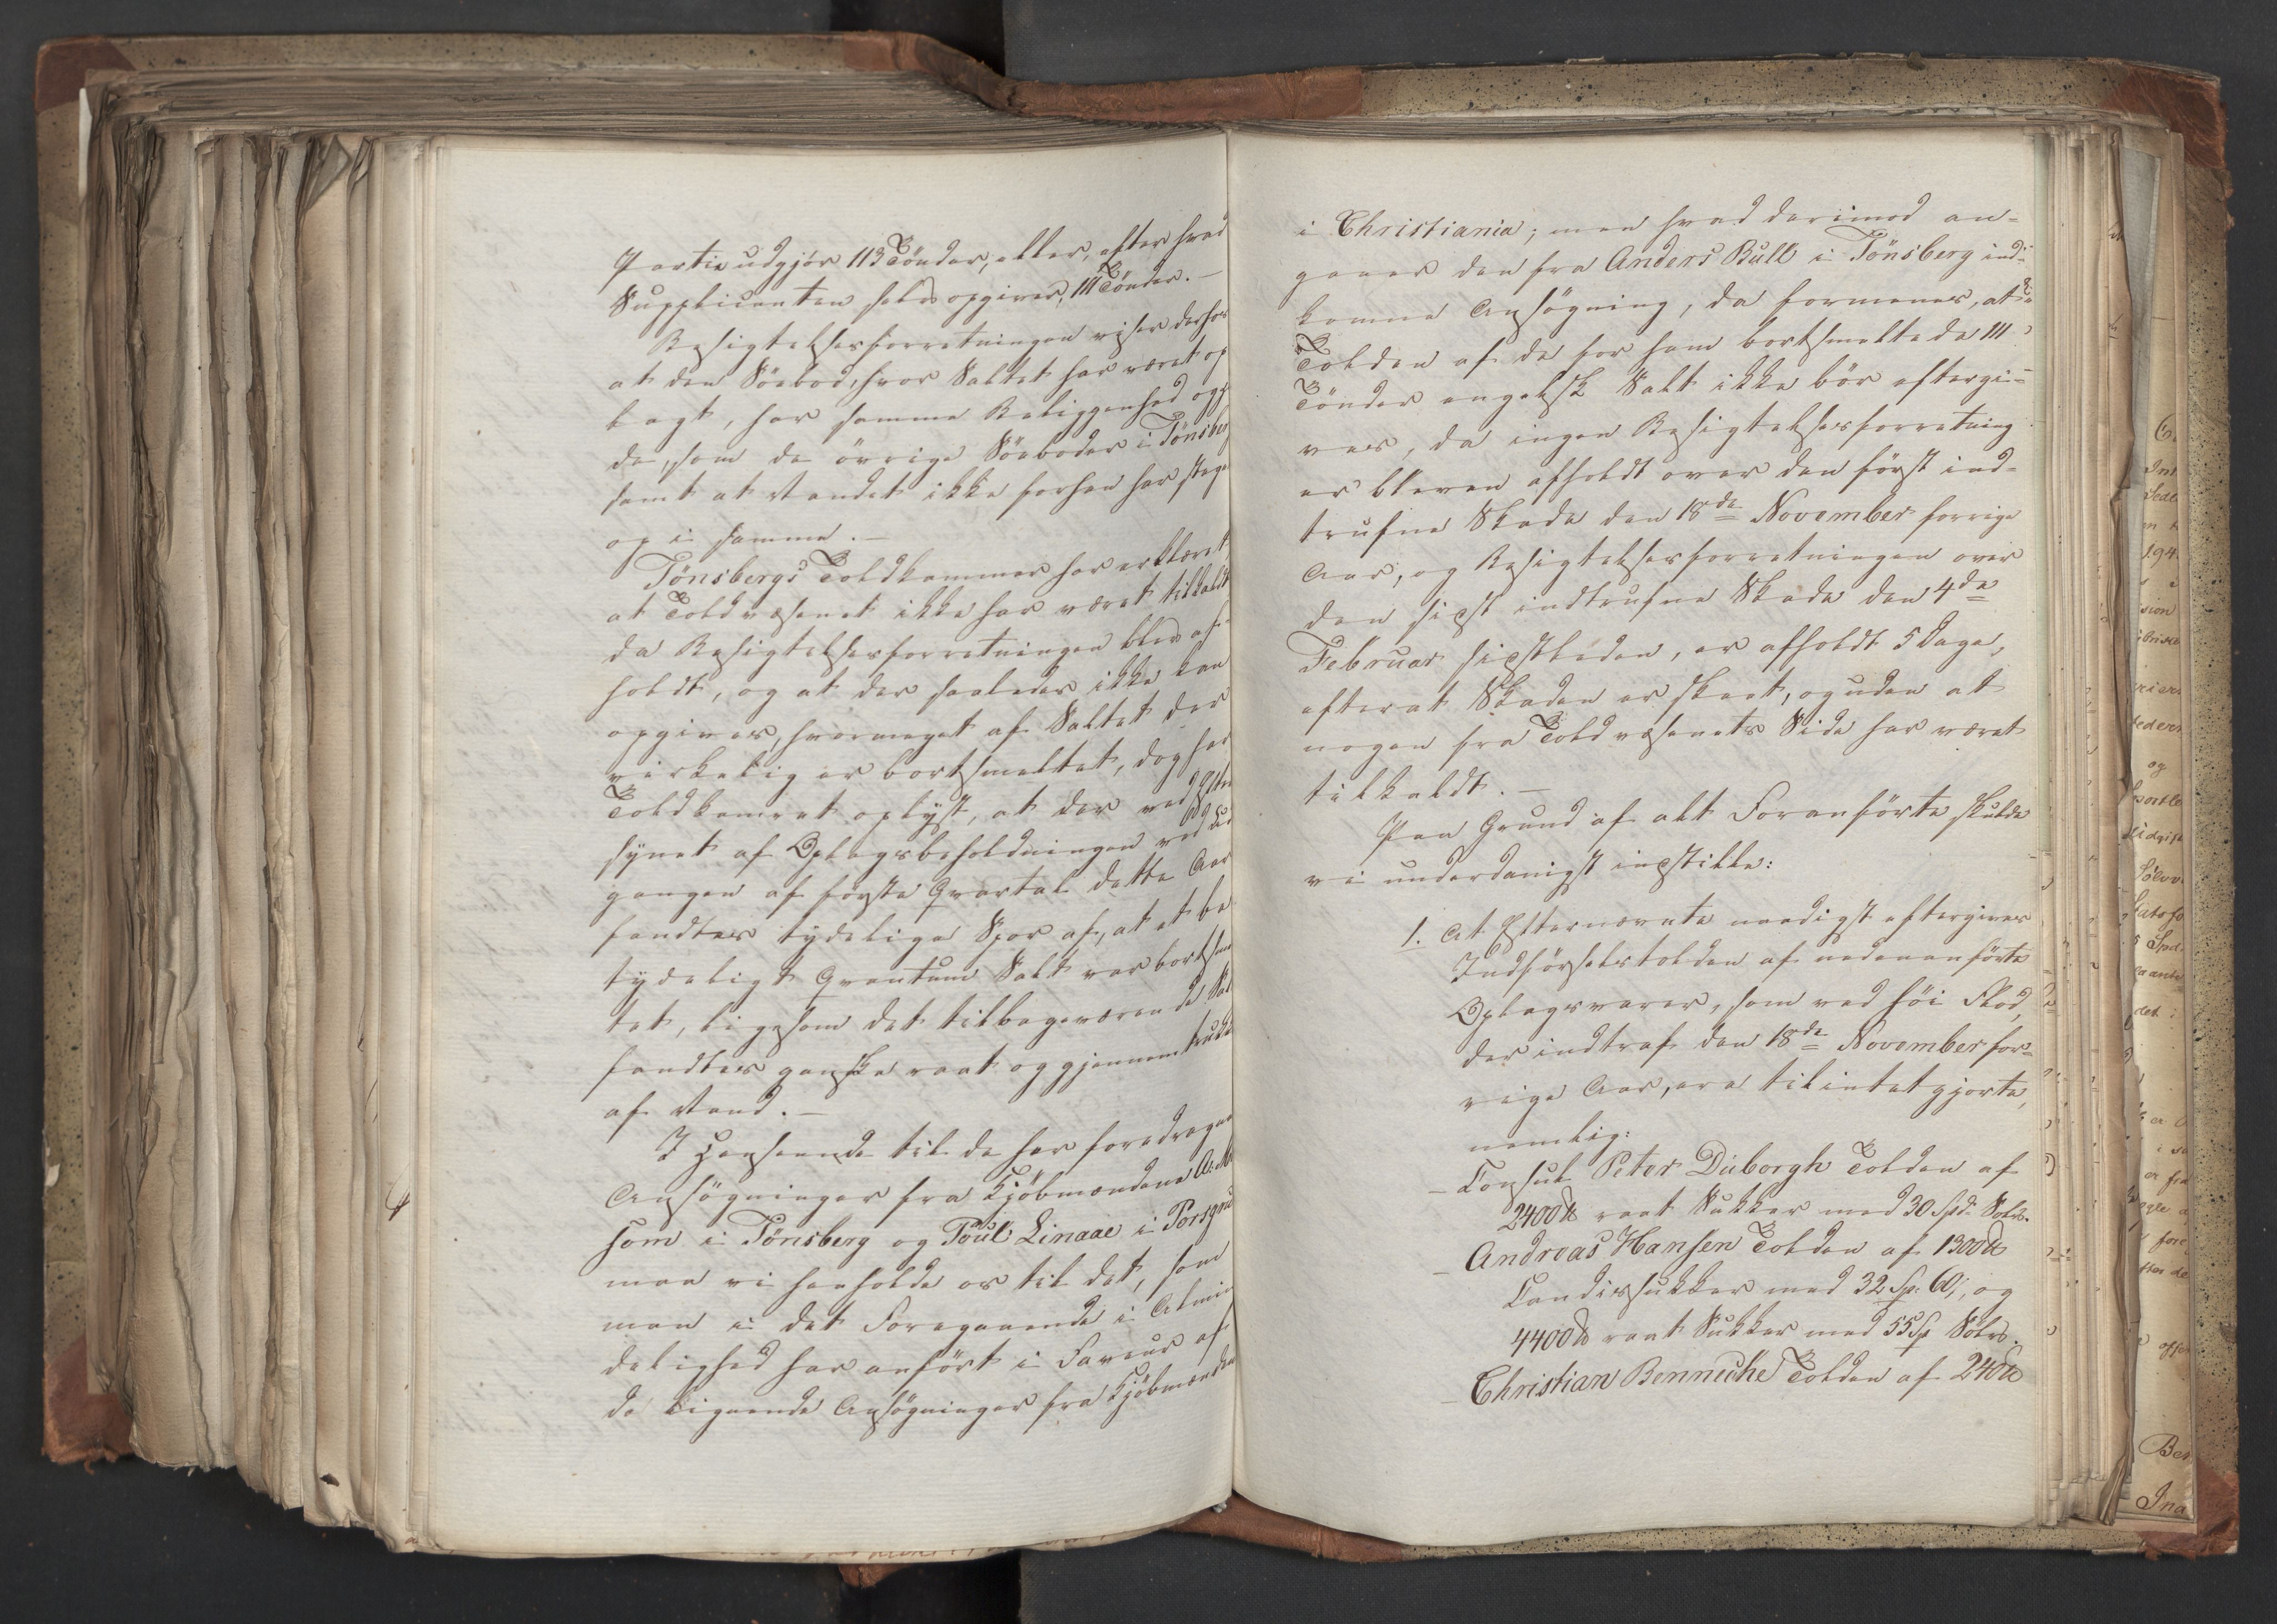 Partie udgjör 113 Tönder, eller, efter hvad
Supplicanten selv opgiver, 111 Tönder. –
Besigtelsesforretningen viser derhos
at den Söebod, hvor Saltet har været op
lagt, har samme Beliggenhed og
de, som de övrige Söeboder i Tönsberg
samt at Vandet ikke forhen har steget
op i samme. –
Tönsbergs Toldkammer har erklæret
at Toldvæsenet ikke har været tilkaldt
da Besigtelsesforretningen blev af-
holdt, og at der saaledes ikke kan
opgives, hvormeget af Saltet der
virkelig er bortsmeltet, dog har
Toldkamret oplyst, at der ved Efter
synet af Oplagsbeholdningen ved Ud
gangen af förste Qvartal dette Aar
fandtes tydelige Spor af, at et be
tydeligt Qvantum Salt var bortsmel
tet, ligesom det tilbageværende Salt
fandtes ganske vaat og gjennemtrukket
af Vand. –
I Henseende til de her foredragne
Ansögninger fra Kjöbmændene
som i Tönsberg og Poul Linaae i Porsgrund
maa vi henholde os til det, som
man i det Foregaaende i Almin
delighed har anfört i Faveur af
de lignende Ansögninger fra Kjöbmænden
i Christiania; men hvad derimod an-
gaaer den fra Anders Bull i Tönsberg ind-
komne Ansögning, da formenes, at
Tolden af de for ham bortsmeltede 111
Tönder engelsk Salt ikke bör eftergi-
ves, da ingen Besigtelsesforretning
er bleven afholdt over den först ind-
trufne Skade den 18de November forrige
Aar, og Besigtelsesforretningen over
den sidst indtrufne Skade den 4de
Februar sidstleden, er afholdt 5 Dage,
efterat Skaden er skeet, og uden at
nogen fra Toldvæsenets Side har været
tilkaldt. –
Paa Grund af alt Foranförte skulde
vi underdanigst indstille:
1. At Efternævnte naadigst eftergives
Indförselstolden af nedenanförte
Oplagsvarer, som ved höi Flod,
der indtraf den 18de November for-
rige Aar, ere tilintetgjorte,
nemlig:
– Consul Peter Duborgh Tolden af
2400 ℔ raat Sukker med 30 Spd. Sölv.
– Andreas Hansen Tolden af 1300 ℔
Candissukker med 32 Sp. 60, og
4400 ℔ raat Sukker med 55 Sp Sölv.
– Christian Bennedke Tolden af 240 ℔